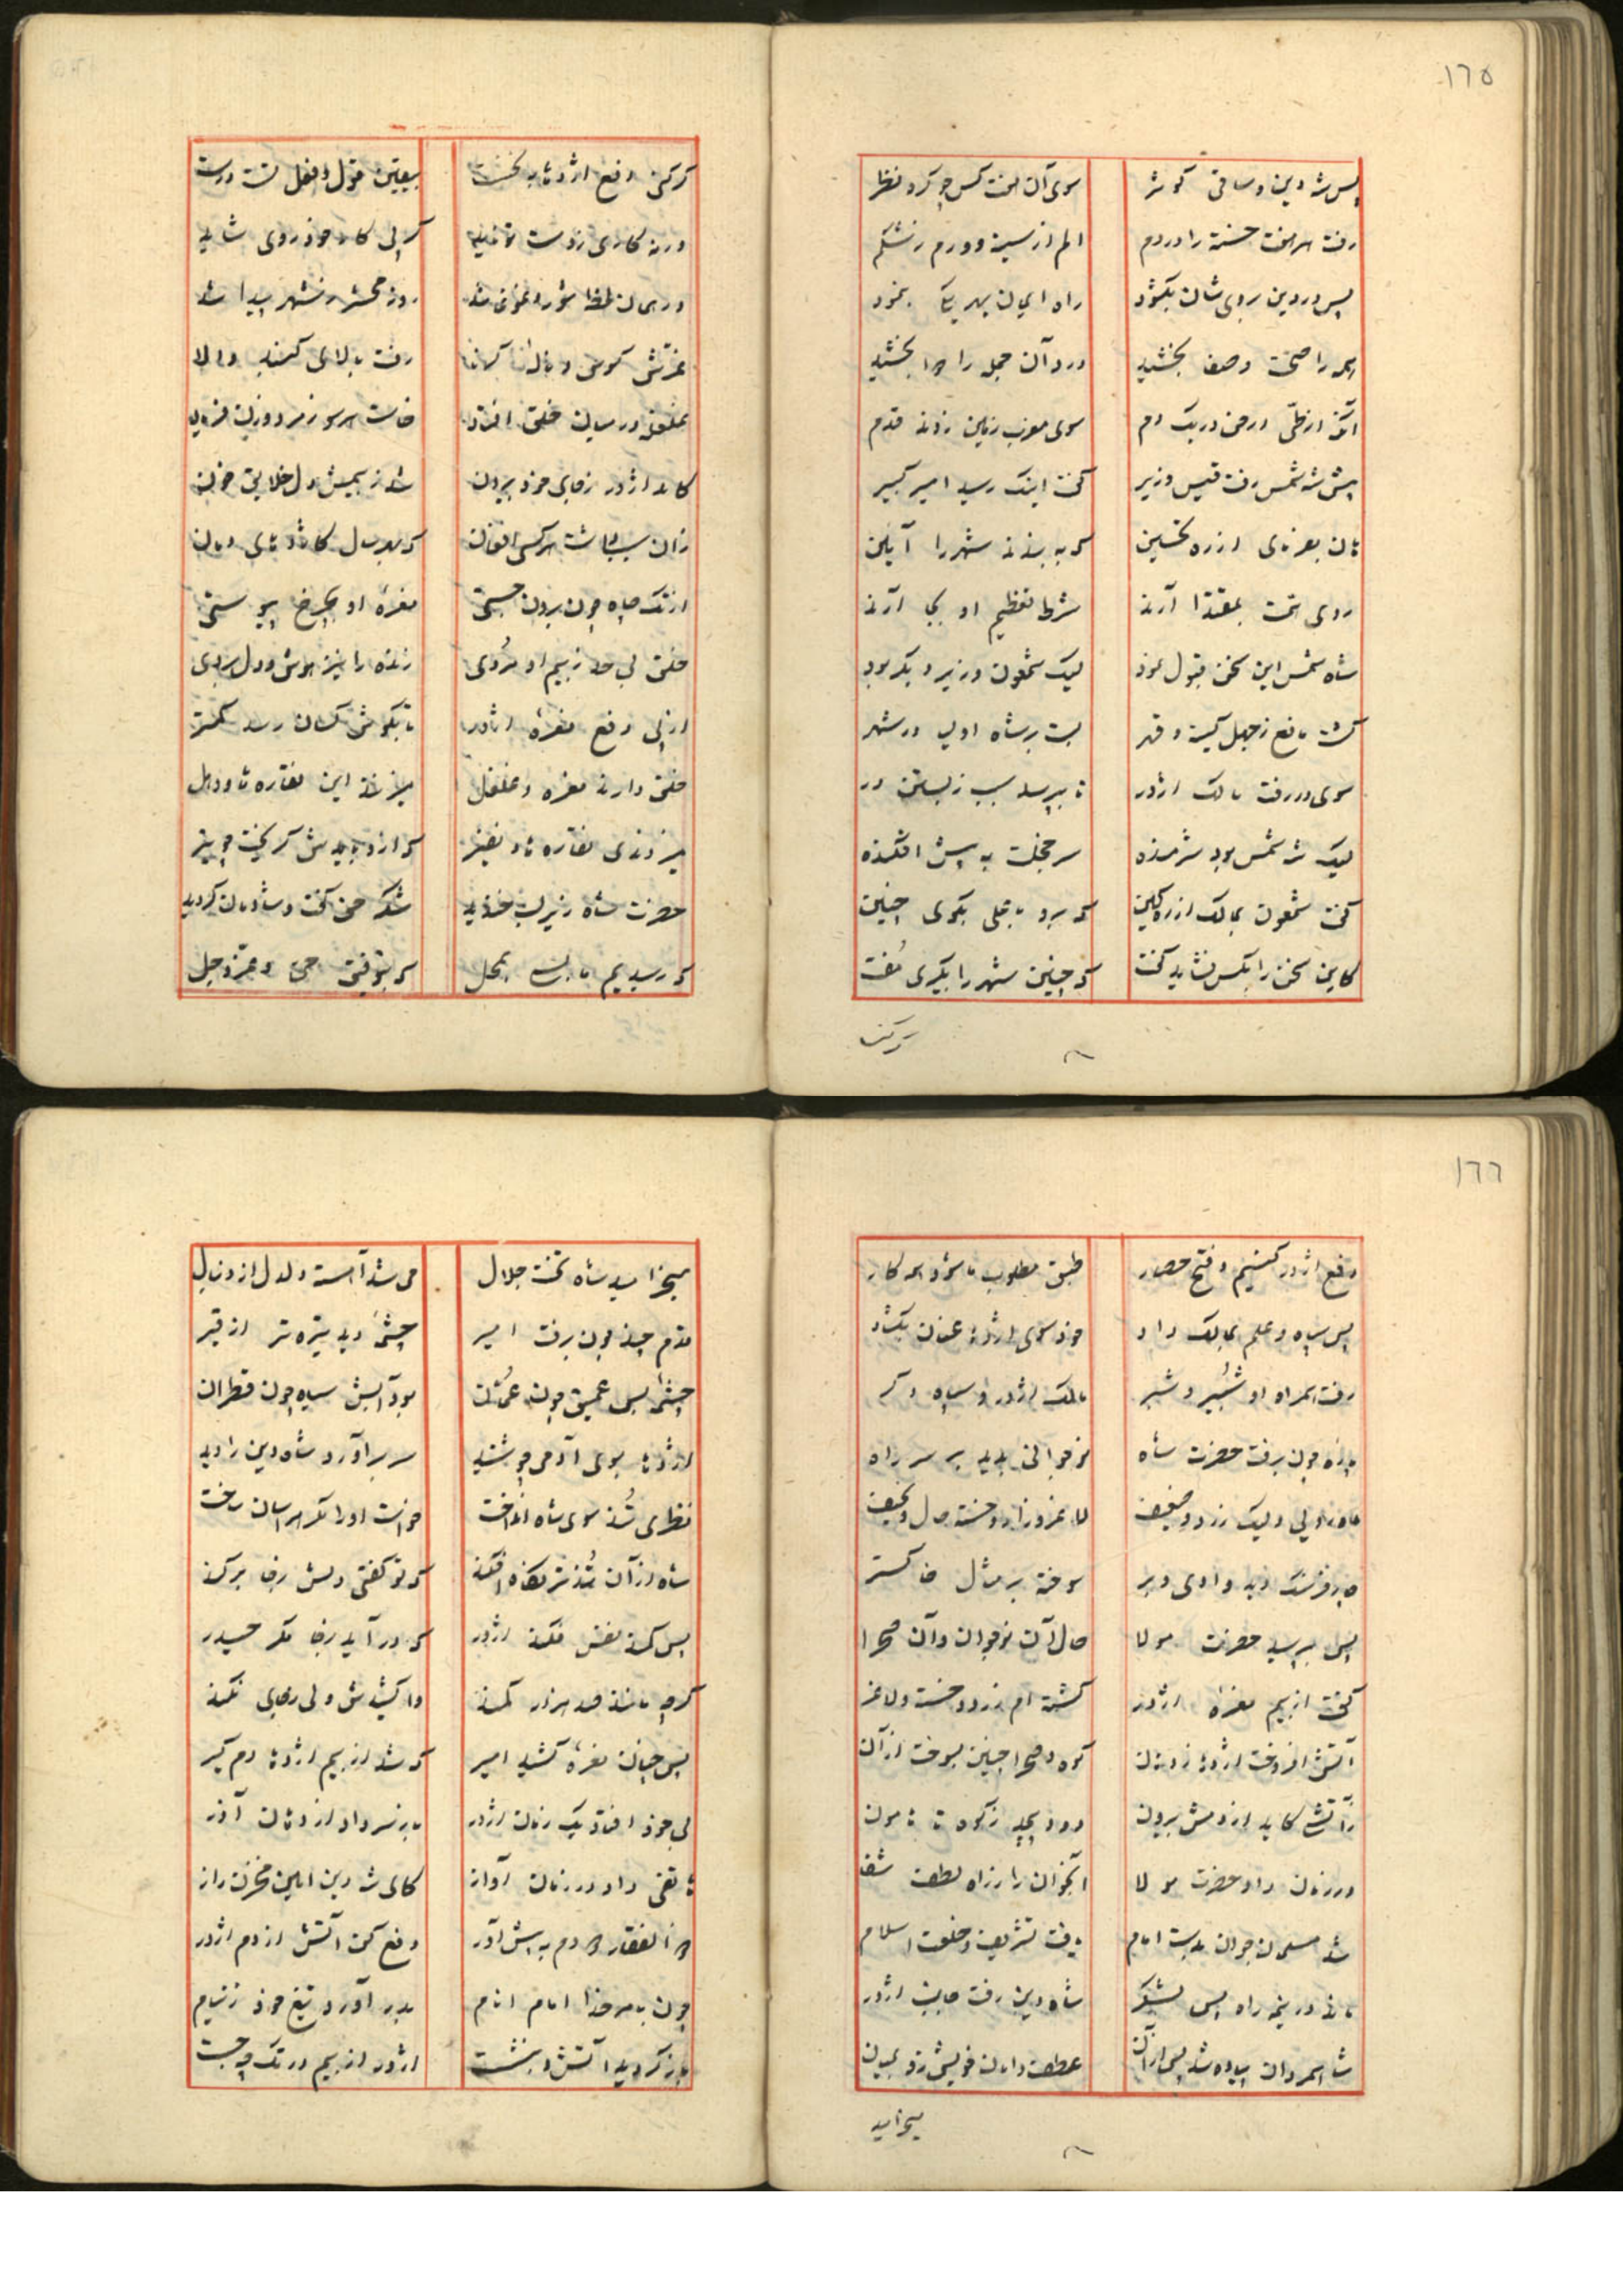 ١٦٥
پس شه دین و ساقی کوثر سوی آن هفت کس چو کرد نظر
رفت هر هفت خسته را در دم الم از سینه و ورم ز شکم
پس در دین بروی شان بگشود راه ایمان بهر یکی بنمود
همه را صحت و صفا بخشید درد آن جمله را دوا بخشید
آنکه از طی ارض در یک دم سوی مغرب زمین زدند قدم
پیش شه شمس رفت قیس وزیر گفت اینک رسید امیر کبیر
که به بندند شهر را آیین
روی همت بمقتدا آرند شرط تعظیم او بجا آرند
شاه شمس این سخن قبول نمود لیک شمعون وزیر دیگر بود
گشت مانع ز جهل کینه و قهر بست بر شاه اولیا در شهر
سوی در رفت مالک اژدر تا بپرسد سبب ز بستن در
لیک شه شمس بود شرمنده سر خجلت به پیش افکنده
گفت شمعون بمالک از ره کین که برو با علی بگوی چنین
کاین سخن را بکس نشاید گفت که چنین شهر را بگیری مفت
گر کنی
گر کنی دفع اژدها به نخست بیقین قول و فعل تست درست
ورنه کاری ز دست تو ناید
در همان لحظه شور و غوغا شد روز محشر بشهر پیدا شد
غرش کوس و ناله کرنا رفت بالای گنبد والا
غلغله در میان خلق افتاد خاست هر سو ز مرد و زن فریاد
کامد اژدر ز جای خود بیرون شد ز بیمش دل خلایق خون
زان سبب داشت هر کس افغان که بهر سال کاژدهای دمان
از تک چاه چون برون جستی نعره او بچرخ پیوستی
خلق بی حد ز بیم او مردی زنده را نیز هوش و دل بردی
از پی دفع نعره اژدر تا بگوش کسان رسد کمتر
خلق دارند نعره و غلغل میزنند این نقاره ها و دهل
میزدندی نقاره ها و نفیر
حضرت شاه زیر لب خندید شکر حق گفت و شادمان گردید
که رسیدیم ما بمحل که بتوفیق حق عز و جل
١٦٦
دفع اژدر کنیم و فتح حصار طبق مطلوب ما شود همه کار
پس سپاه و علم بمالک داد خود سوی اژدها عنان بگشاد
رفت همراه او شبیر و شبر مالک اژدر و سپاه دگر
پاره چون برفت حضرت شاه نوجوانی بدید بر سر راه
ماه روئی ولیک زرد و ضعیف لاغر و زار و خسته حال و نحیف
چار فرسنگ دید وادی و بر سوخته بر مثال خاکستر
پس بپرسید حضرت مولا حال آن نوجوان و آن صحرا
گفت از بیم نعره اژدر گشته ام زرد و خسته و لاغر
آتش افروخت اژدها ز دهان کوه و صحرا چنین بسوخت از آن
زآتشی کاید از دمش بیرون دود پیچید ز کوه تا هامون
در زمان داد حضرت مولا آنجوان را ز راه لطف شفا
شد مسلمان جوان بدست امام یافت تشریف و خلعت اسلام
ماند در نیمه راه پس لشکر شاه دین رفت جانب اژدر
شاه مردان پیاده شد پس از آن عطف دامان خویش زد بمیان
میخرامید
میخرامید شاه تخت جلال می شد آهسته دلدل از دنبال
قدم چند چون برفت امیر چشمه دید تیره تر از قیر
چشمه بس عمیق چون عمان بود آبش سیاه چون قطران
اژدها بوی آدمی چو شنید سر برآورد شاه دین را دید
نظری تند سوی شاه انداخت خواست او را مگر هراسان ساخت
شاه از آن تندتر نگاه افکند که تو گفتی دلش ز جا برکند
پس کمند نفس فکند اژدر که در آید ز جا مگر حیدر
گرچه مانند صد هزار کمند واکشیدش ولی ز جای نکند
پس چنان نعره کشید امیر که شد از بیم اژدها دم گیر
بی خود افتاد یک زمان اژدر باز سر داد از دهان آذر
هاتفی داد در زمان آواز کای شه دین امین مخزن راز
ذوالفقار دو دم به پیش آور دفع کن آتش از دم اژدر
چون بامر خدا امام انام بدر آورد تیغ خود ز نیام
باز گردید آتش و بنشست اژدر از بیم در تک چه جست